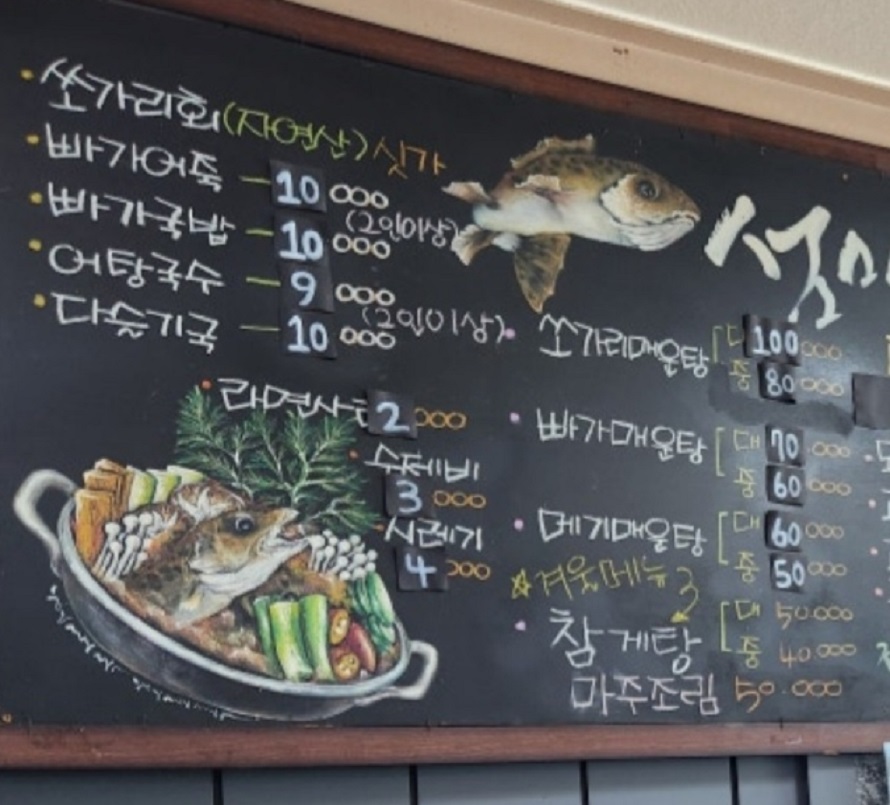 쏘가리회(자연산)싯가
빠가어죽 — 10000
(2인이상)
빠가국밥 — 10000
어탕국수 — 9000
(2인이상)
다슬기국 — 10000
라면사리 2000
수제비
3000
시레기
4000
쏘가리매운탕 [대 100000
중 80000
빠가매운탕 [대 70.000
중 60000
메기매운탕 [대 60000
중 50000
☆겨울메뉴
참게탕 [대 50.000
중 40.000
마주조림 50.000